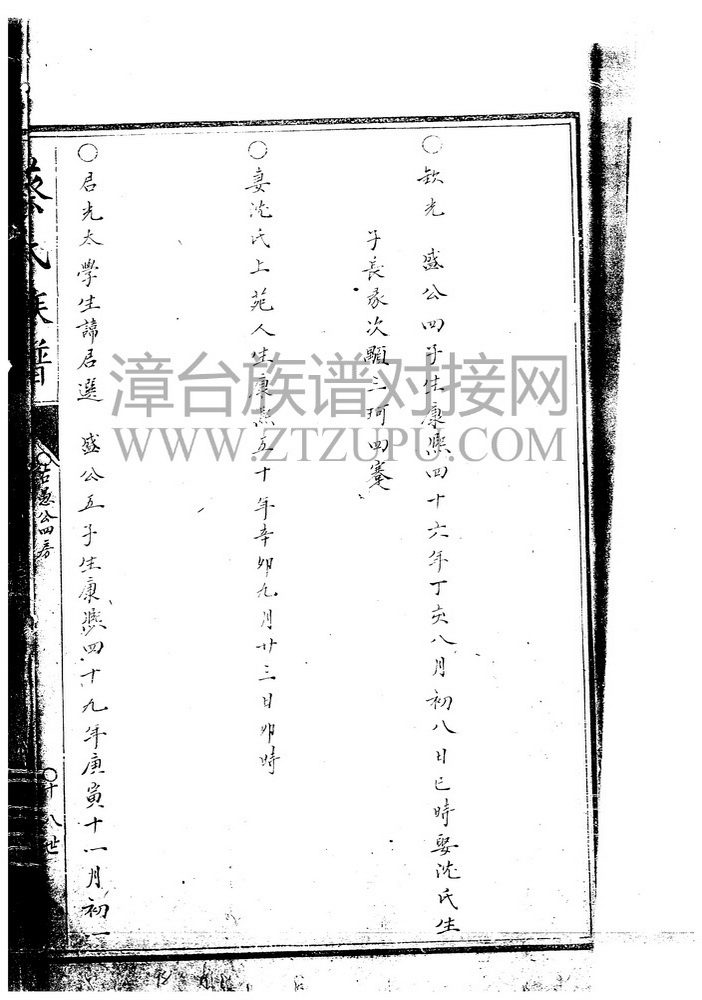 ○欽光 盛公四子生康熙四十六年丁亥八月初八日巳時娶沈氏生
子長彖次顯三珂四蹇
○妻沈氏上苑人生康熙五十年辛卯九月廿三日卯時
○君光太學生諱君選 盛公五子生康熙四十九年庚寅十一月初一
蔡氏族譜
愚公四房
○十八世
漳台族谱对接网
WWW.ZTZUPU.COM